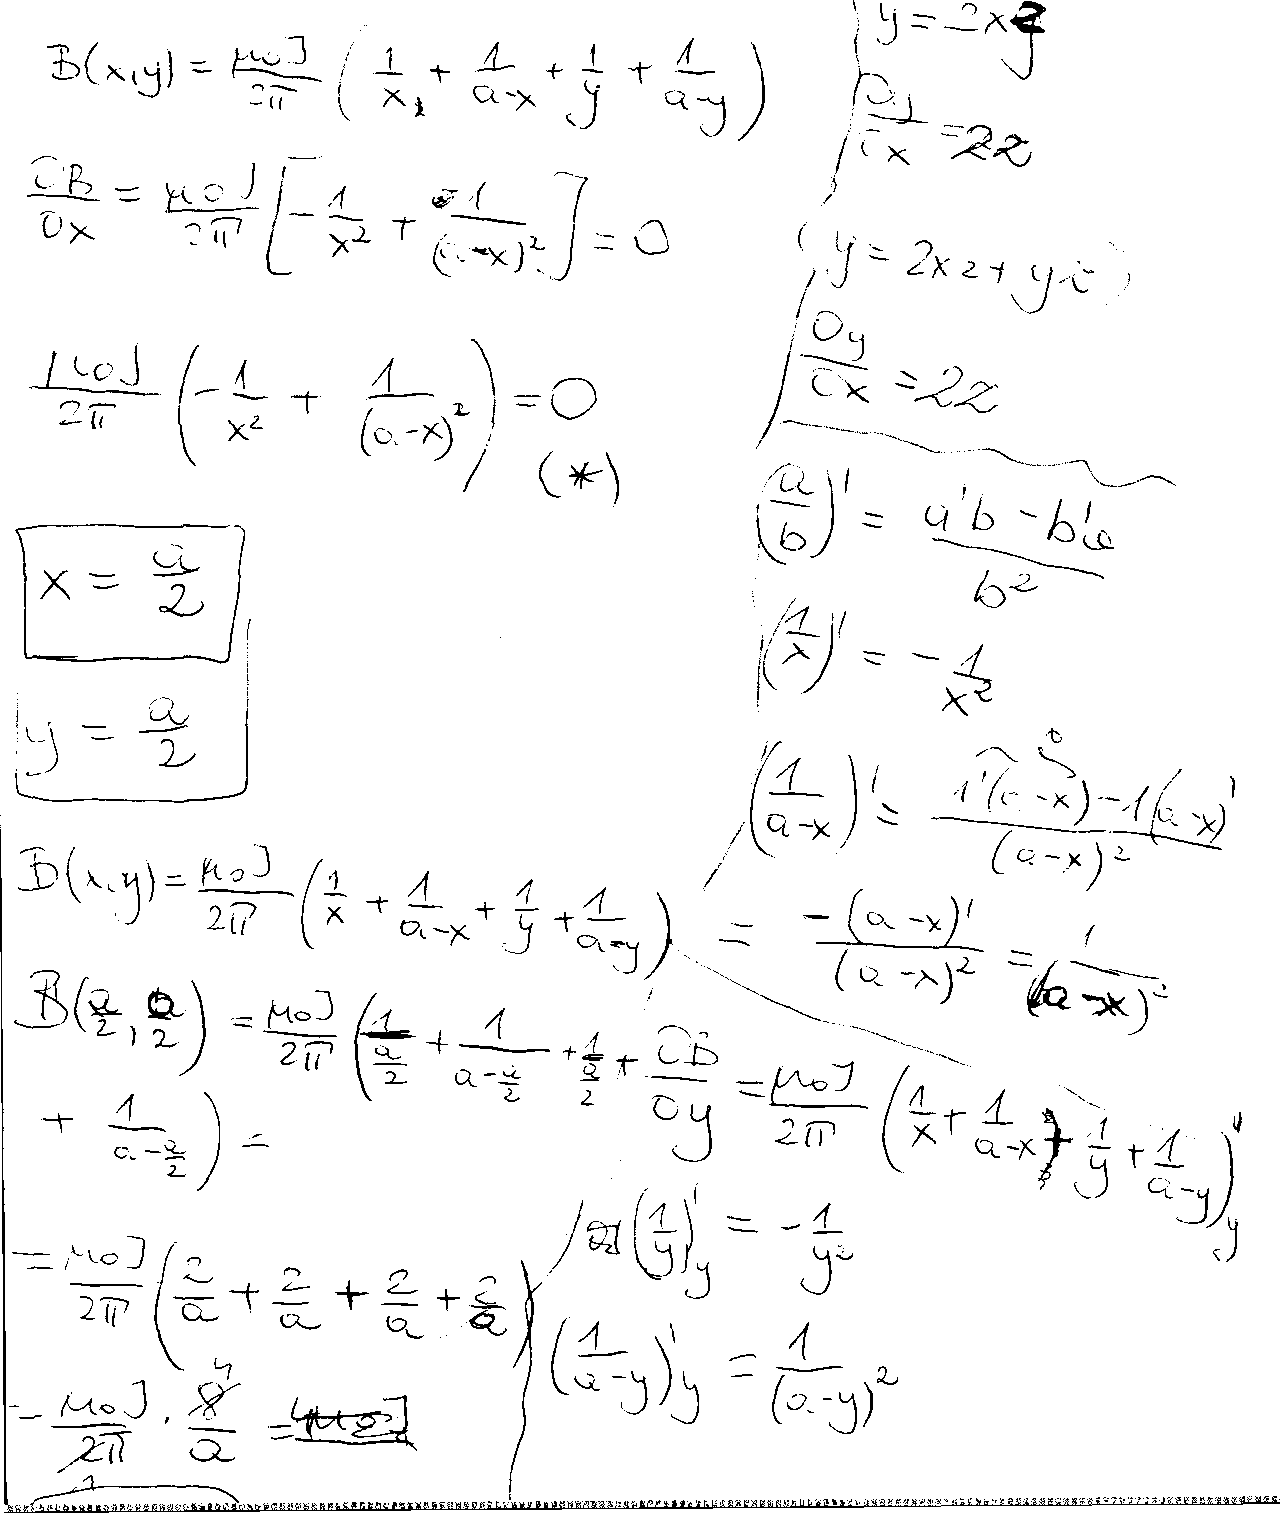 B(x,y) = μ₀J/2π (1/x + 1/(a-x) + 1/y + 1/(a-y))
∂B/∂x = μ₀J/2π [-1/x² + 1/(a-x)²] = 0
μ₀J/2π (-1/x² + 1/(a-x)²) = 0
(*)
x = a/2
y = a/2
B(x,y) = μ₀J/2π (1/x + 1/(a-x) + 1/y + 1/(a-y))
B(a/2, a/2) = μ₀J/2π (1/(a/2) + 1/(a-a/2) + 1/(a/2) +
+ 1/(a-a/2)) =
= μ₀J/2π (2/a + 2/a + 2/a + 2/a)
- μ₀J/2π · 8/a =
y = 2xz
∂y/∂x = 2z
(y = 2xz + yz)
∂y/∂x = 2z
(a/b)' = (a'b - b'a)/b²
(1/x)' = -1/x²
(1/(a-x))' = (1'(a-x) - 1(a-x)')/(a-x)²
= -(a-x)'/(a-x)² = 1/(a-x)²
∂B/∂y = μ₀J/2π (1/x + 1/(a-x) + 1/y + 1/(a-y))'y
(1/y)'y = -1/y²
(1/(a-y))'y = 1/(a-y)²